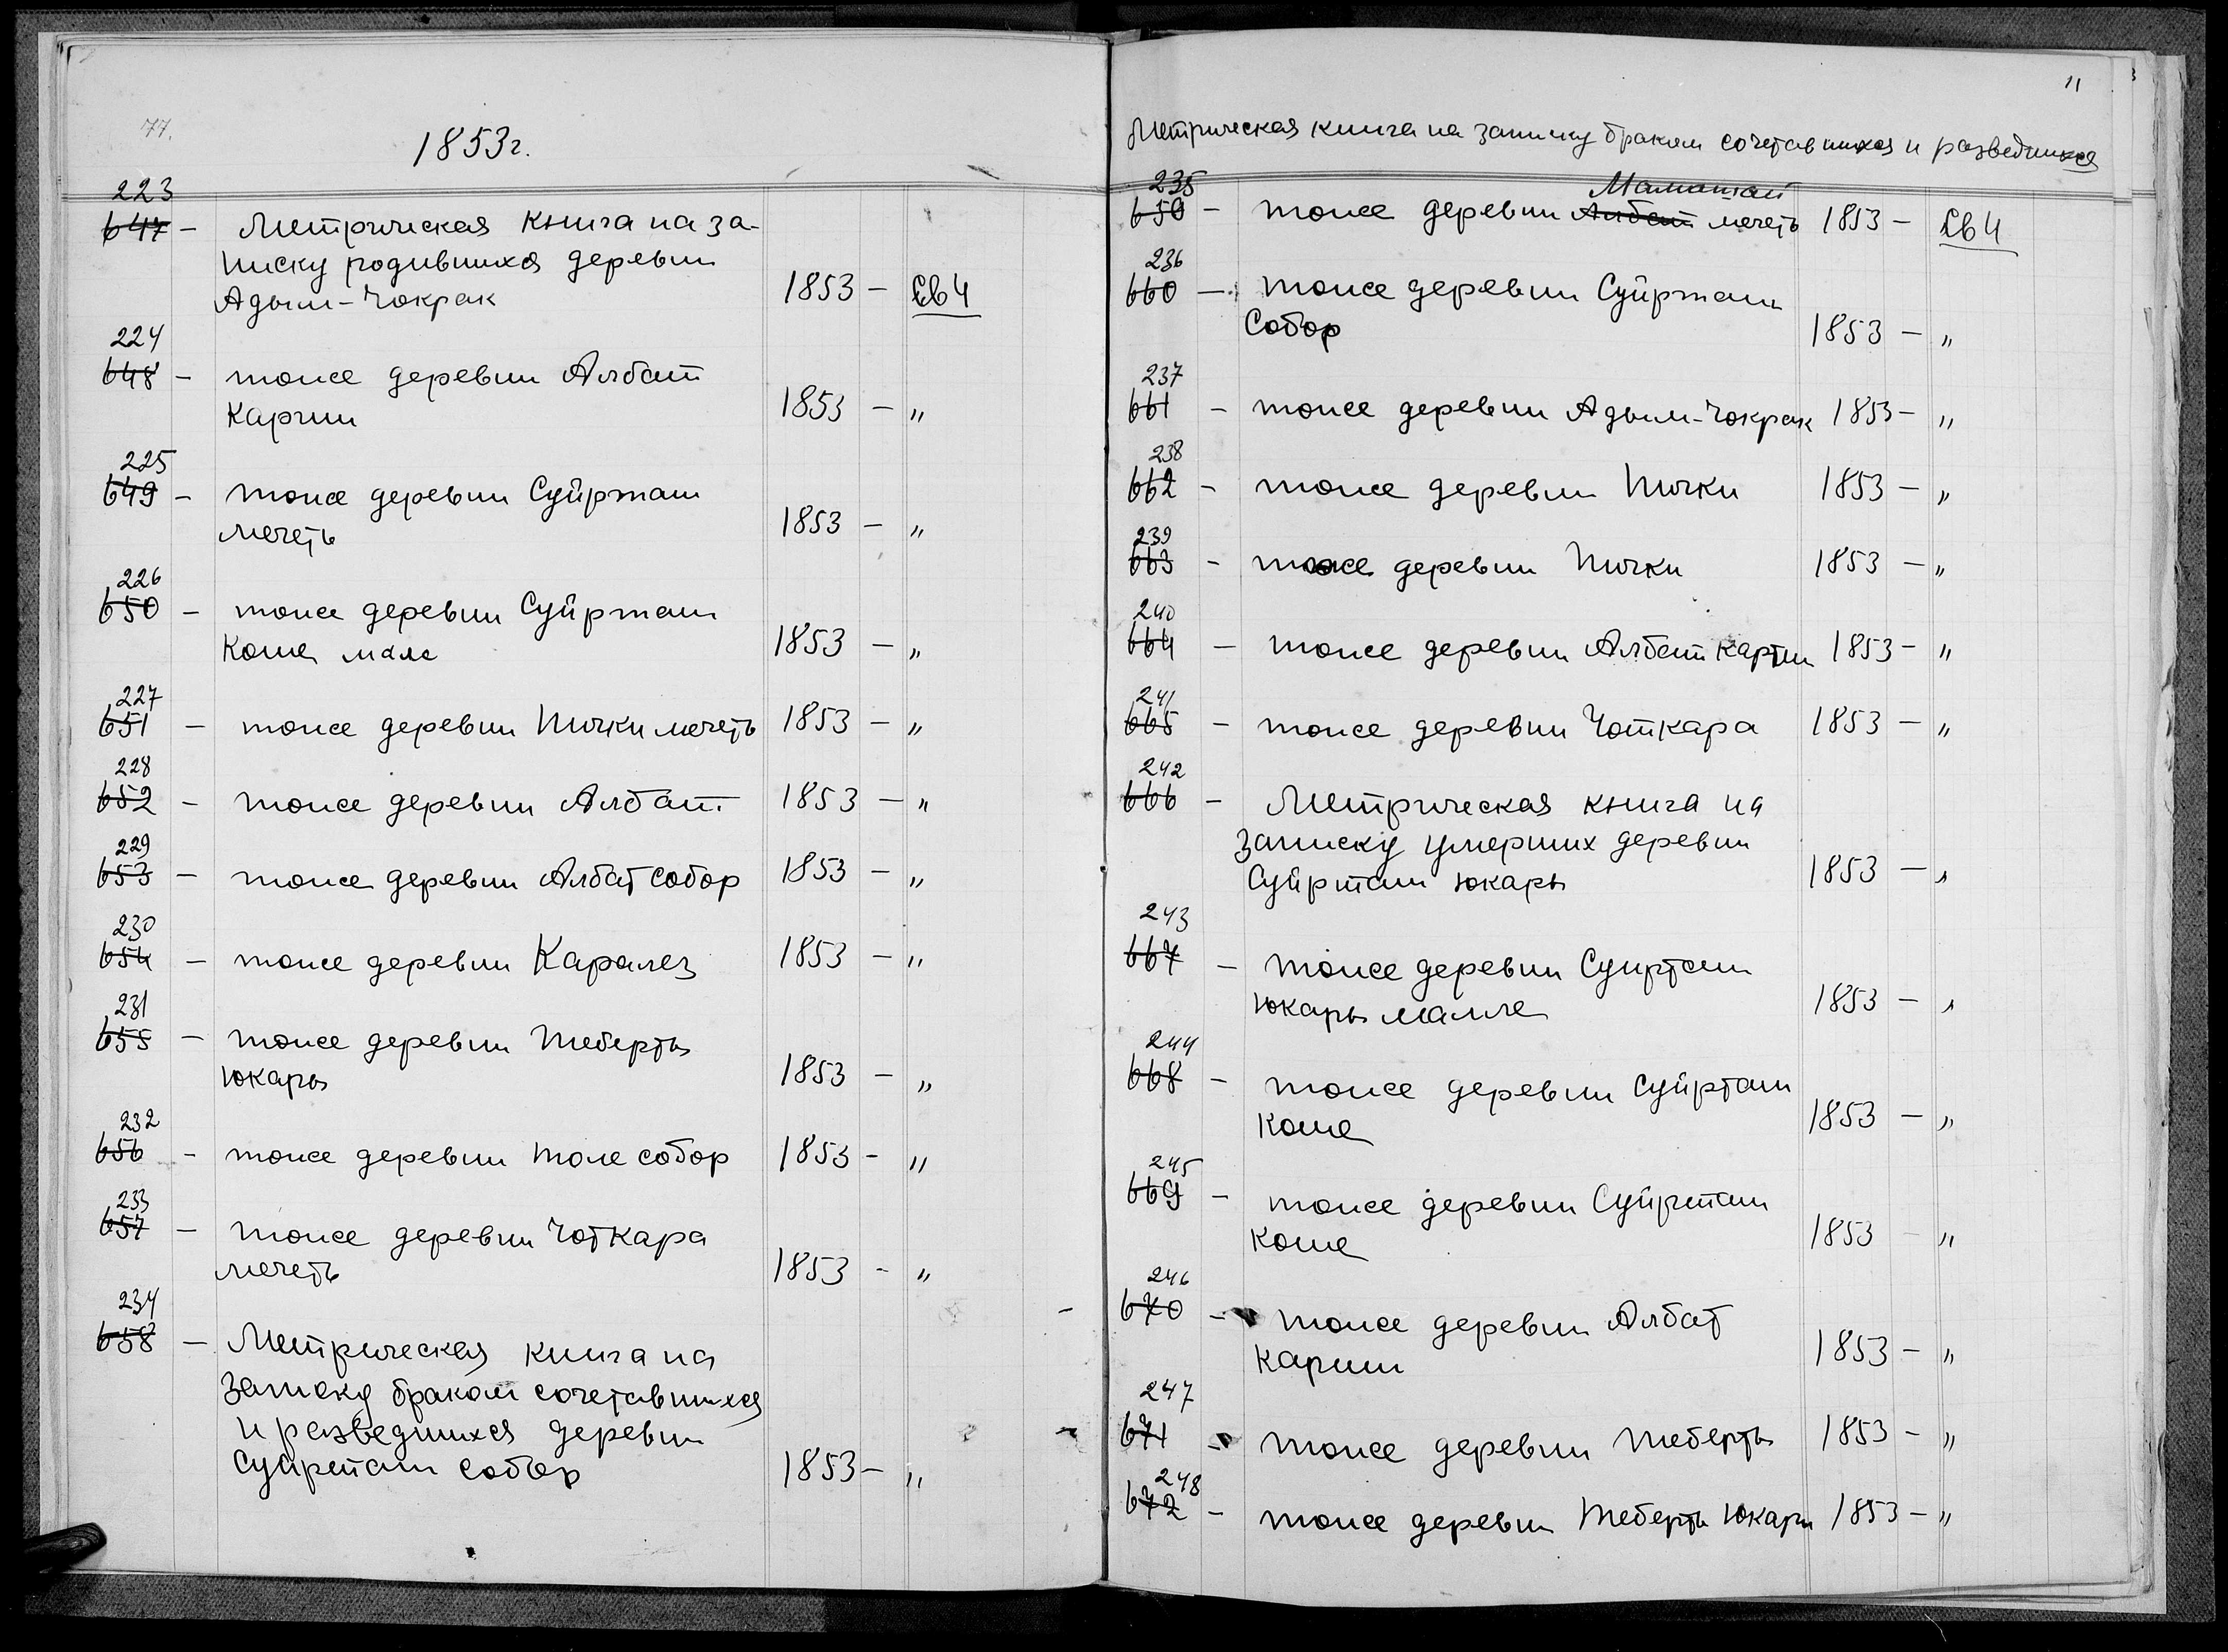 77.
1853г.
223
647 - Метрическая книга на за-
писку родившихся деревни
Адым-Чокрак 1853 - Ев Ч
224
648 - тоже деревни Албат
Каргии 1853 - "
225
649 - тоже деревни Суйрташ
мечеть 1853 - "
226
650 - тоже деревни Суйрташ
Коше мале 1853 - "
227
651 - тоже деревни Пички мечеть 1853 - "
228
652 - тоже деревни Албат 1853 - "
229
653 - тоже деревни Албат собор 1853 - "
230
654 - тоже деревни Каралез 1853 - "
231
655 - тоже деревни Теберть
Юкары 1853 - "
232
656 - тоже деревни толе собор 1853 - "
233
657 - тоже деревни Чоткара
мечеть 1853 - "
234
658 - Метрическая книга на
записку браком сочетавшихся
и разведшихся деревни
Суйрташ собор 1853 - "
11
Метрическая книга на записку браком сочетавшихся и разведшихся
235 Маматай
659 - тоже деревни Албат мечеть 1853 - Ев Ч
236
660 - тоже деревни Суйрташ
Собор 1853 - "
237
661 - тоже деревни Адым-Чокрак 1853 - "
238
662 - тоже деревни Пички 1853 - "
239
663 - тоже деревни Пички 1853 - "
240
664 - тоже деревни Албат Картии 1853 - "
241
665 - тоже деревни Чоткара 1853 - "
242
666 - Метрическая книга на
записку умерших деревни
Суйрташ Юкары 1853 - "
243
667 - тоже деревни Суирташ
Юкары малле 1853 - "
244
668 - тоже деревни Суйрташ
Коше 1853 - "
245
669 - тоже деревни Суйрташ
Коше 1853 - "
246
670 - тоже деревни Албат
Каршии 1853 - "
247
671 - тоже деревни Теберть 1853 - "
248
672 - тоже деревни Теберть Юкары 1853 - "